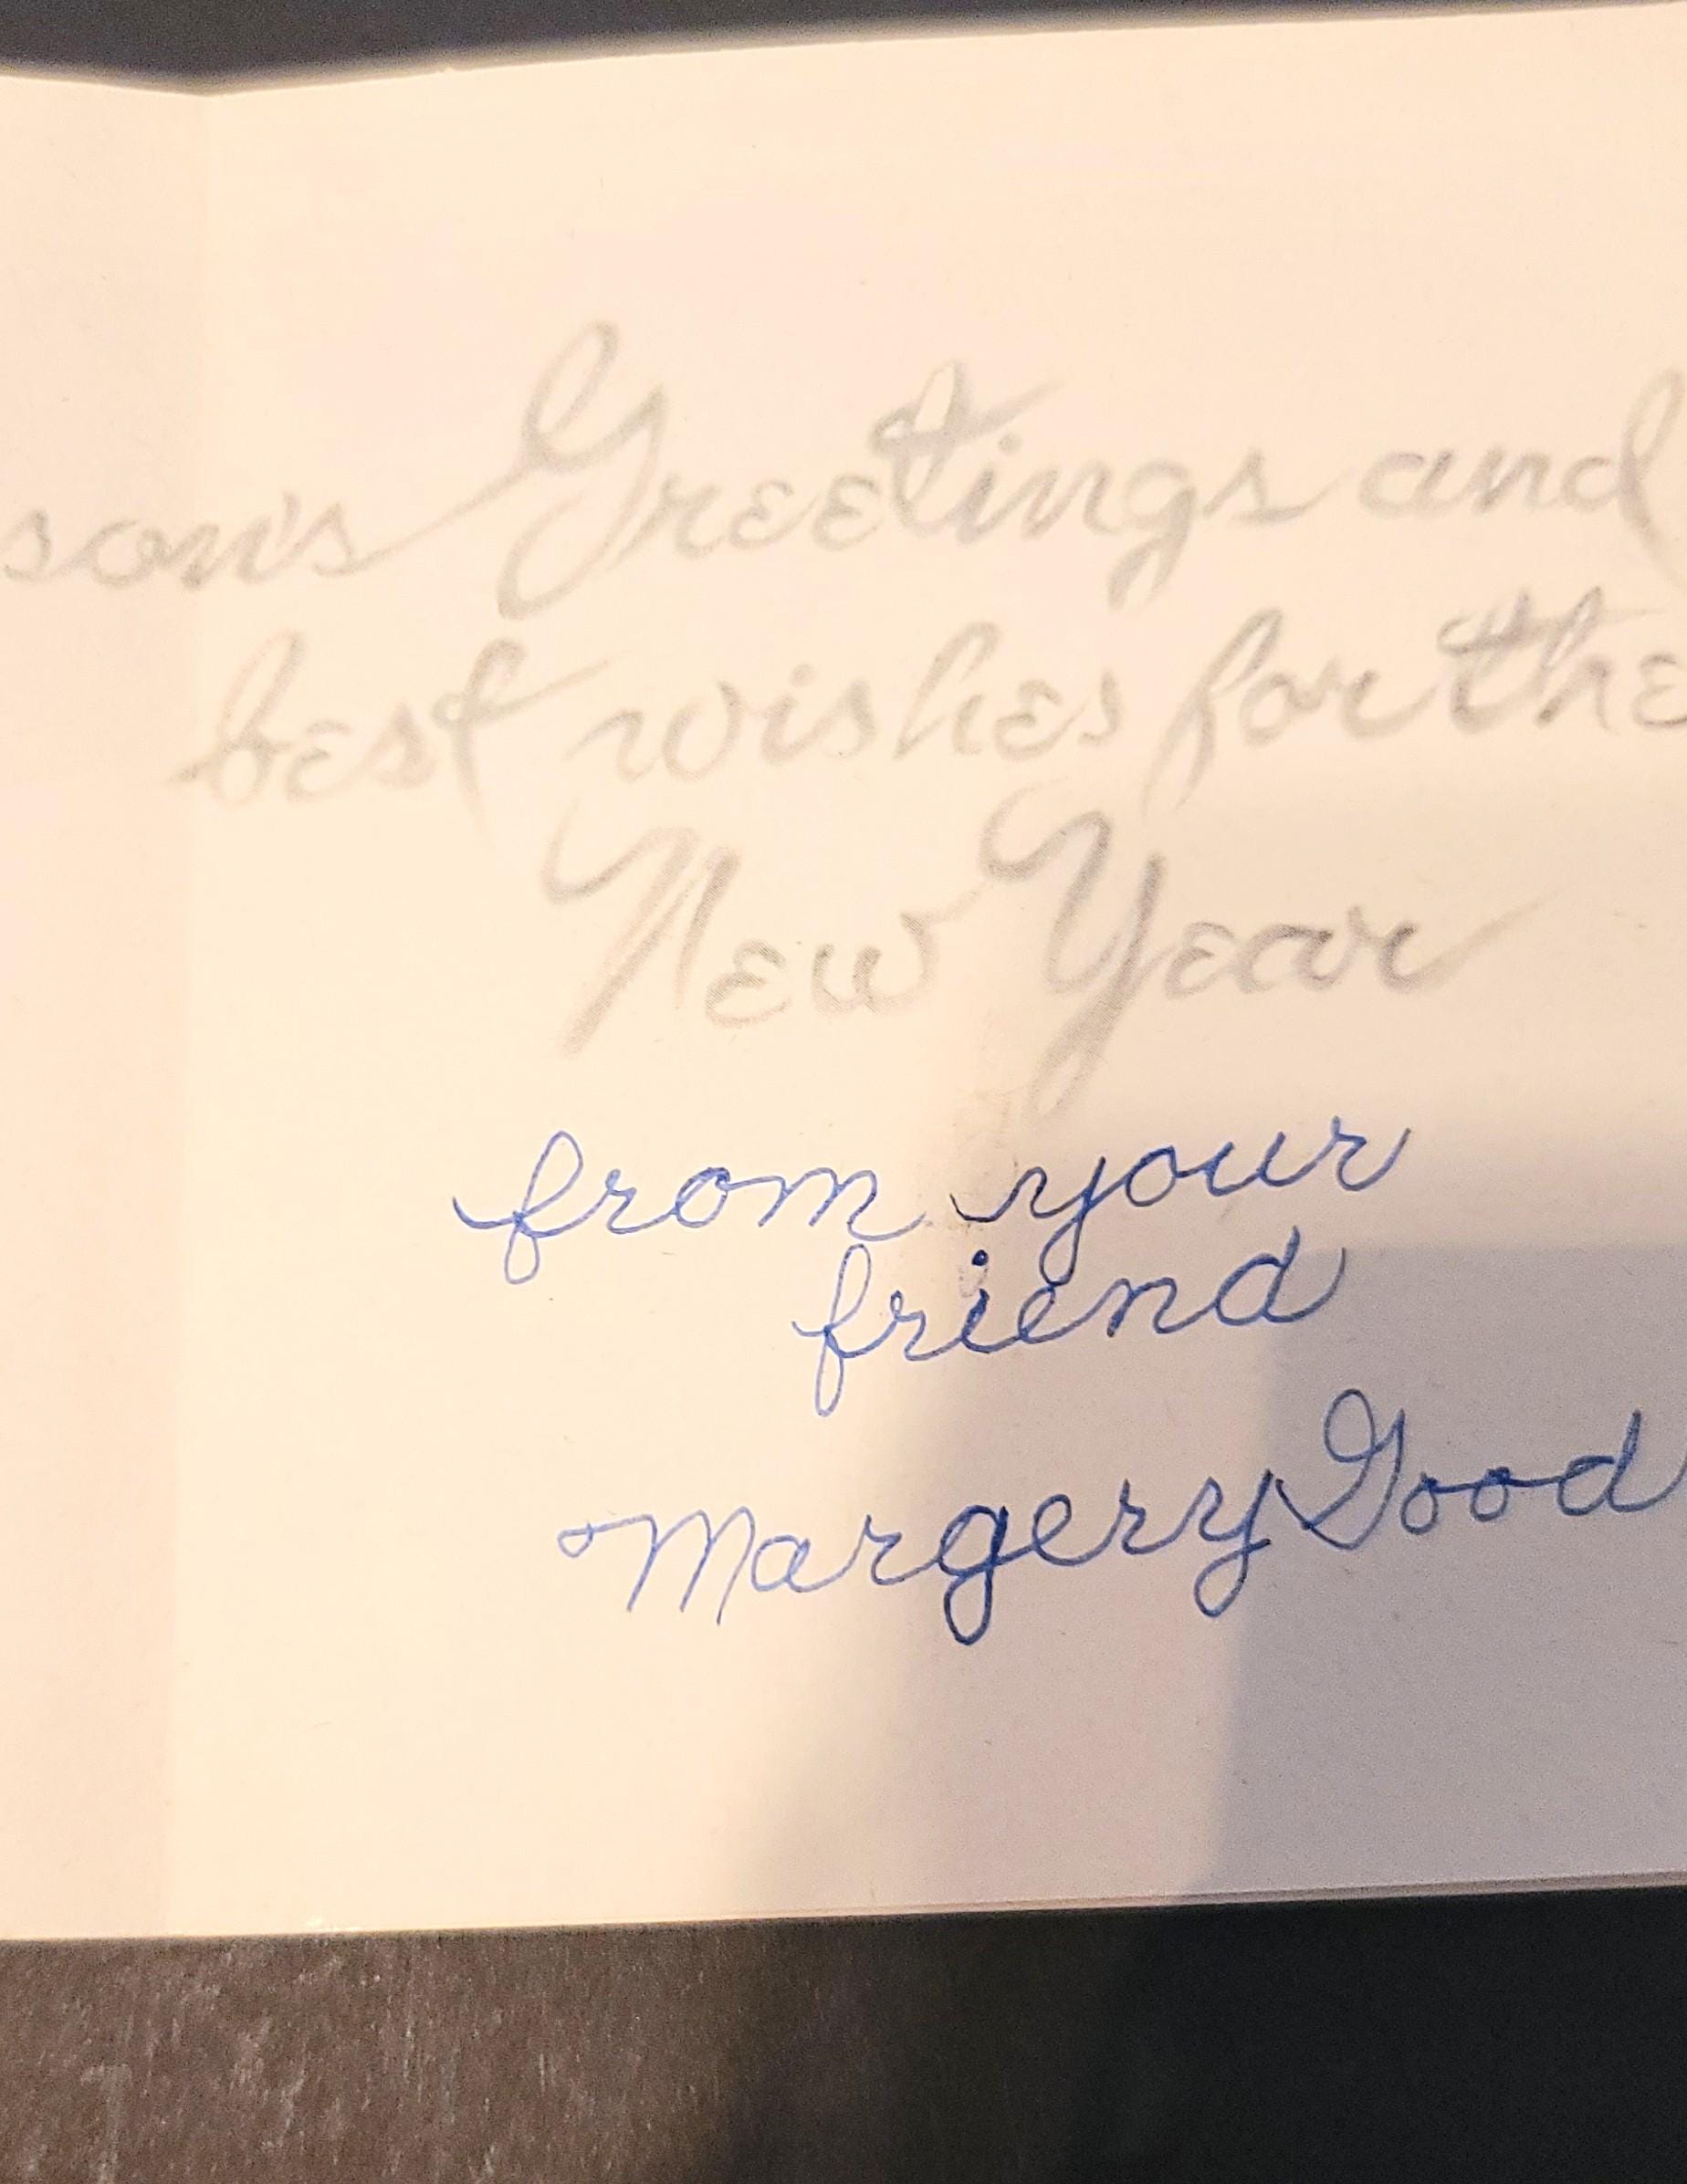 son's Greetings and
best wishes for the
New Year
from your
friend
Margery Good